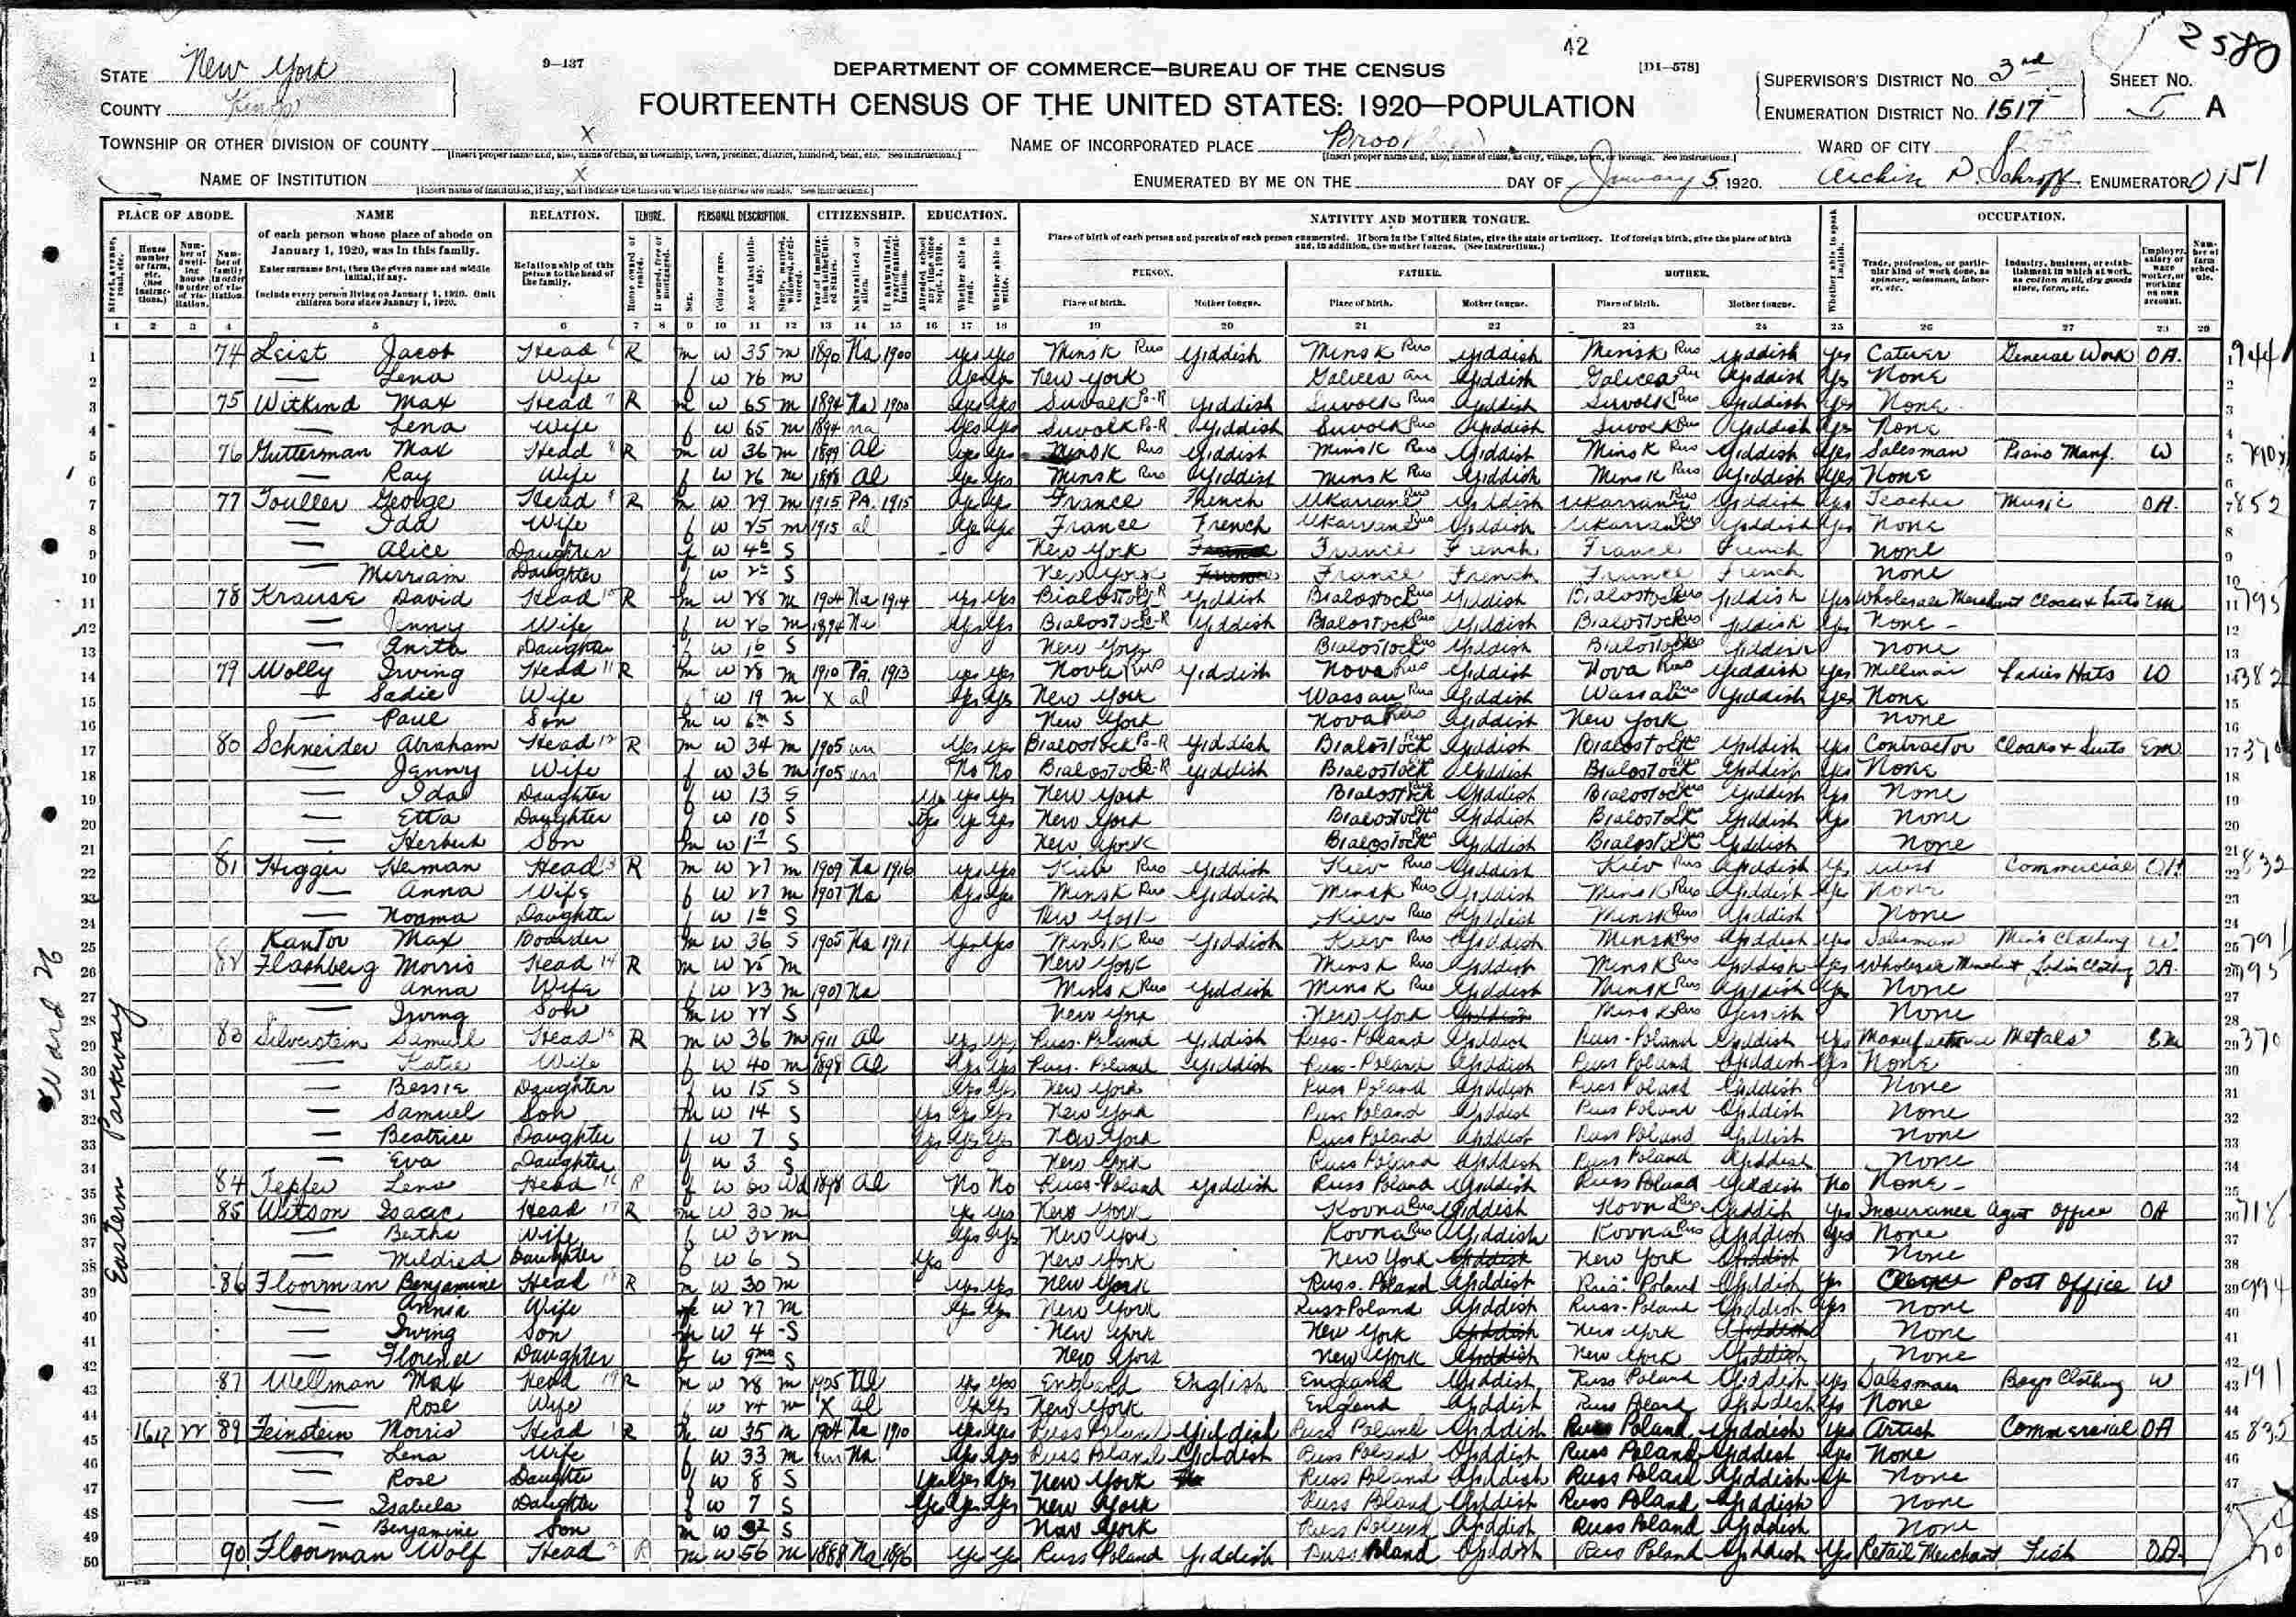 42
2580
STATE New York
9-137
DEPARTMENT OF COMMERCE—BUREAU OF THE CENSUS
[D1-578]
SUPERVISOR'S DISTRICT No. 3rd SHEET No.
COUNTY Kings
FOURTEENTH CENSUS OF THE UNITED STATES: 1920—POPULATION
ENUMERATION DISTRICT No. 1517 5 A
TOWNSHIP OR OTHER DIVISION OF COUNTY X
[Insert proper name and, also, name of class, as township, town, precinct, district, hundred, beat, etc. See instructions.]
NAME OF INCORPORATED PLACE Brooklyn
[Insert proper name and, also, name of class, as city, village, town, or borough. See instructions.]
WARD OF CITY
NAME OF INSTITUTION X
[Insert name of institution, if any, and indicate the lines on which the entries are made. See instructions.]
ENUMERATED BY ME ON THE DAY OF January 5, 1920. ENUMERATOR 0151
PLACE OF ABODE. NAME RELATION. TENURE. PERSONAL DESCRIPTION. CITIZENSHIP. EDUCATION. NATIVITY AND MOTHER TONGUE. OCCUPATION.
of each person whose place of abode on January 1, 1920, was in this family.
Enter surname first, then the given name and middle initial, if any.
Include every person living on January 1, 1920. Omit children born since January 1, 1920.
Relationship of this person to the head of the family.
Place of birth of each person and parents of each person enumerated. If born in the United States, give the state or territory. If of foreign birth, give the place of birth and, in addition, the mother tongue. (See Instructions.)
PERSON. FATHER. MOTHER.
Place of birth. Mother tongue. Place of birth. Mother tongue. Place of birth. Mother tongue.
1 2 3 4 5 6 7 8 9 10 11 12 13 14 15 16 17 18 19 20 21 22 23 24 25 26 27 28 29
Ward 26
Eastern Parkway
1 74 Leist Jacob Head R m w 35 m 1890 Na 1900 yes yes Minsk Rus Yiddish Minsk Rus Yiddish Minsk Rus Yiddish yes General Work OA
2 — Lena Wife f w 26 m yes yes New York Galicea Au Yiddish Galicea Au Yiddish yes None
3 75 Witkind Max Head R m w 65 m 1894 Na 1900 yes yes Suvolk Po-R Yiddish Suvolk Rus Yiddish Suvolk Rus Yiddish yes None
4 — Lena Wife f w 65 m 1894 na yes yes Suvolk Po-R Yiddish Suvolk Rus Yiddish Suvolk Rus Yiddish yes None
5 76 Gutterman Max Head R m w 36 m 1899 Al yes yes Minsk Rus Yiddish Minsk Rus Yiddish Minsk Rus Yiddish yes Salesman Piano Manf. W
6 — Ray Wife f w 26 m 1898 Al yes yes Minsk Rus Yiddish Minsk Rus Yiddish Minsk Rus Yiddish yes None
7 77 Touller George Head R m w 29 m 1915 PA. 1915 yes yes France French Ukarrane Rus Yiddish Ukarrane Rus Yiddish yes Teacher Music OA 852
8 — Ida Wife f w 25 m 1915 al yes yes France French Ukarrane Rus Yiddish Ukarrane Rus Yiddish yes None
9 — Alice Daughter f w S New York France French France French None
10 — Merriam Daughter f w S New York France French France French None
11 78 Krause David Head R m w 28 m 1904 Na 1914 yes yes Bialostock P-R Yiddish Bialostock Rus Yiddish Bialostock Rus Yiddish yes Wholesale Merchant Cloaks & Suits Em 795
12 — Jenny Wife f w 26 m 1894 Na yes yes Bialostock P-R Yiddish Bialostock Rus Yiddish Bialostock Rus Yiddish yes None
13 — Anita Daughter f w S New York Bialostock Rus Yiddish Bialostock Rus Yiddish None
14 79 Wolly Irving Head R m w 28 m 1910 Pa. 1913 yes yes Nova Rus Yiddish Nova Rus Yiddish Nova Rus Yiddish yes Ladies Hats W 382
15 — Sadie Wife f w 19 m X al yes yes New York Wassau Rus Yiddish Wassau Rus Yiddish yes None
16 — Paul Son m w S New York Nova Rus Yiddish New York None
17 80 Schneider Abraham Head R m w 34 m 1905 un yes yes Bialostock Po-R Yiddish Bialostock Rus Yiddish Bialostock Rus Yiddish yes Contractor Cloaks & Suits Em
18 — Jenny Wife f w 36 m 1905 un No No Bialostock P-R Yiddish Bialostock Rus Yiddish Bialostock Yiddish yes None
19 — Ida Daughter f w 13 S yes yes yes New York Bialostock Rus Yiddish Bialostock Rus Yiddish yes None
20 — Etta Daughter f w 10 S yes yes yes New York Bialostock Rus Yiddish Bialostock Yiddish yes None
21 — Herbert Son m w S New York Bialostock Rus Yiddish Bialostock Yiddish None
22 81 Higger Heman Head R m w 27 m 1909 Na 1916 yes yes Kiev Rus Yiddish Kiev Rus Yiddish Kiev Rus Yiddish yes Artist Commercial OA 832
23 — Anna Wife f w 27 m 1907 Na yes yes Minsk Rus Yiddish Minsk Rus Yiddish Minsk Rus Yiddish yes None
24 — Norma Daughter f w S New York Kiev Rus Yiddish Minsk Rus Yiddish None
25 Kantov Max Boarder m w 36 S 1905 Na 1911 yes yes Minsk Rus Yiddish Kiev Rus Yiddish Minsk Rus Yiddish yes Salesman Men's Clothing W 791
26 82 Flashberg Morris Head R m w 25 m New York Minsk Rus Yiddish Minsk Rus Yiddish yes Wholesale Merchant Ladies Clothing OA 795
27 — Anna Wife f w 23 m 1907 Na Minsk Rus Yiddish Minsk Rus Yiddish Minsk Rus Yiddish yes None
28 — Irving Son m w S New York New York Minsk Rus Yiddish None
29 83 Silverstein Samuel Head R m w 36 m 1911 Al yes yes Russ-Poland Yiddish Russ-Poland Yiddish Russ-Poland Yiddish yes Metals Em 370
30 — Katie Wife f w 40 m 1898 Al yes yes Russ-Poland Yiddish Russ-Poland Yiddish Russ Poland Yiddish yes None
31 — Bessie Daughter f w 15 S yes yes New York Russ Poland Yiddish Russ Poland Yiddish None
32 — Samuel Son m w 14 S yes yes yes New York Russ Poland Yiddish Russ Poland Yiddish None
33 — Beatrice Daughter f w 7 S yes yes yes New York Russ Poland Yiddish Russ Poland Yiddish None
34 — Eva Daughter f w 3 S New York Russ Poland Yiddish Russ Poland Yiddish None
35 84 Tepfer Lena Head R f w 60 Wd 1898 Al No No Russ-Poland Yiddish Russ Poland Yiddish Russ Poland Yiddish No None
36 85 Witson Isaac Head R m w 30 m yes yes New York Kovna Rus Yiddish Kovna Rus Yiddish yes Insurance Agent Office OA 718
37 — Betha Wife f w 32 m yes yes New York Kovna Rus Yiddish Kovna Rus Yiddish yes None
38 — Mildred Daughter f w 6 S yes New York New York Yiddish New York Yiddish None
39 86 Floorman Benjamine Head R m w 30 m yes yes New York Russ. Poland Yiddish Russ. Poland Yiddish yes Post Office W 994
40 — Annia Wife f w 27 m yes yes New York Russ Poland Yiddish Russ-Poland Yiddish yes None
41 — Irving Son m w 4 S New York New York Yiddish New York Yiddish None
42 — Florence Daughter f w 9mo S New York New York Yiddish New York Yiddish None
43 87 Wellman Max Head R m w 28 m 1905 Al yes yes England English England Yiddish Russ Poland Yiddish yes Salesman Boys Clothing W 191
44 — Rose Wife f w 24 m X al yes yes New York England Yiddish Russ Poland Yiddish yes None
45 1617 22 89 Feinstein Morris Head R m w 35 m 1904 Na 1910 yes yes Russ Poland Yiddish Russ Poland Yiddish Russ Poland Yiddish yes Artist Commercial OA 832
46 — Lena Wife f w 33 m un Na yes yes Russ Poland Yiddish Russ Poland Yiddish Russ Poland Yiddish yes None
47 — Rose Daughter f w 8 S yes yes yes New York Russ Poland Yiddish Russ Poland Yiddish yes None
48 — Isabela Daughter f w 7 S yes yes yes New York Russ Poland Yiddish Russ Poland Yiddish None
49 — Benjamine Son m w S New York Russ Poland Yiddish Russ Poland Yiddish None
50 90 Floorman Wolf Head R m w 56 m 1888 Na 1896 yes yes Russ Poland Yiddish Russ Poland Yiddish Russ Poland Yiddish yes Retail Merchant Fish OA